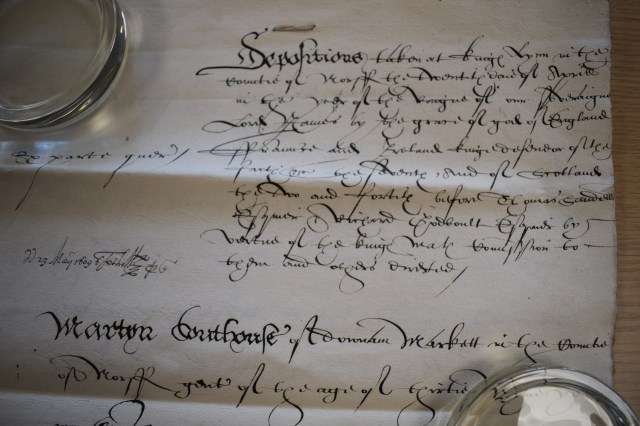 Depositions taken at kinges Lynn in the
Countie of Norff the Twentith daie of Aprill
in the year of the Raigne of our Soveraigne
Lord James by the grace of god of England
Ffraunce and Ireland kinge defendor of the
faith &c the seventh, And of Scotland
the two and fortith before Thomas
Esquier & Richard Godboult Esquier by
vertue of the kings Mats Comission to
them and others directed /
Ex parte quer /
23 May 1609
Martyn of downam Markett in the Countie
of Norff gent of the age of thirtie